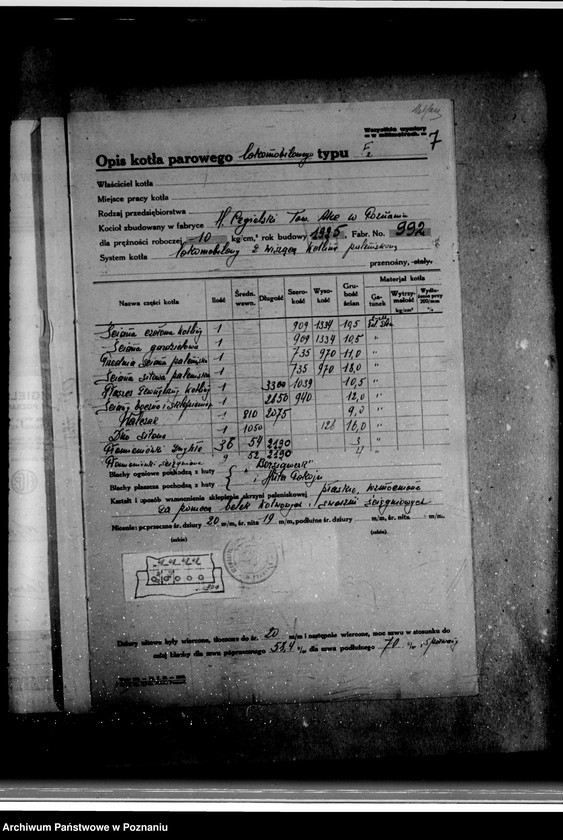 7
Wszystkie wymiary
w milimetrach.
Opis kotła parowego lokomobilowego typu
Właściciel kotła
Miejsce pracy kotła
Rodzaj przedsiębiorstwa
Kocioł zbudowany w fabryce H. Cegielski Tow. Akc w Poznaniu
dla prężności roboczej 10 kg/cm,² rok budowy 1925. Fabr. No. 992
System kotła lokomobilowy z wiszącą
przenośny, stały.
Nazwa części kotła Ilość Średn. wewn. Długość Szerokość Wysokość Grubość ścian Materjał kotła Gatunek Wytrzymałość kg/cm² Wydłużenie przy 200/mm %
Ściana czołowa 1 909 1334 10,5
Ściana gardzielowa 1 909 1334 10,5 "
Przednia ściana paleniska 1 735 970 11,0 "
Ściana sitowa paleniska 1 735 970 18,0 "
Płaszcz zewnętrzny 1 3300 1039 10,5 "
Ściany boczne i sklepienie 1 2650 940 12,0 "
Walczak 1 810 2075 9,0 "
Dno sitowe 1 1050 126 16,0 "
Płomieniówki zwykłe 36 54 2190 3 "
Płomieniówki 9 52 2190 "
Blachy ogniowe pochodzą z huty "
Blachy płaszcza pochodzą z huty " Huta Pokoju
Kształt i sposób wzmocnienia sklepienia skrzyni paleniskowej płaskie, wzmocnione
za pomocą belek kotwowych i sworzni ściągniowych
Nicenie: poprzeczne śr. dziury 20 m/m, śr. nita 19 m/m, podłużne śr. dziury m/m, śr. nita m/m.
(szkic) (szkic)
Dziury nitowe były wiercone, tłoczone do śr. 20 m/m i następnie wiercone, moc szwu w stosunku do
całej blachy dla szwu poprzecznego 58,4 % dla szwu podłużnego 70 %,
Archiwum Państwowe w Poznaniu